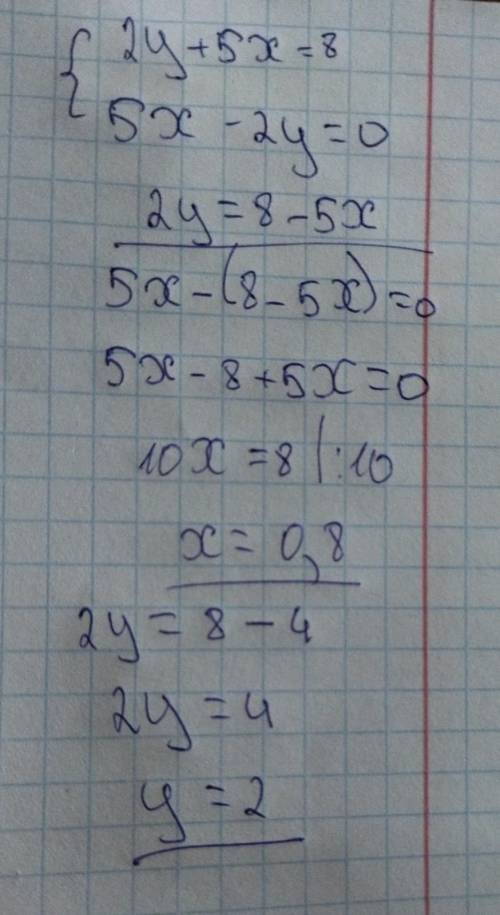 { 2y+5x=8
5x-2y=0
2y=8-5x
5x-(8-5x)=0
5x-8+5x=0
10x=8|:10
x=0,8
2y=8-4
2y=4
y=2